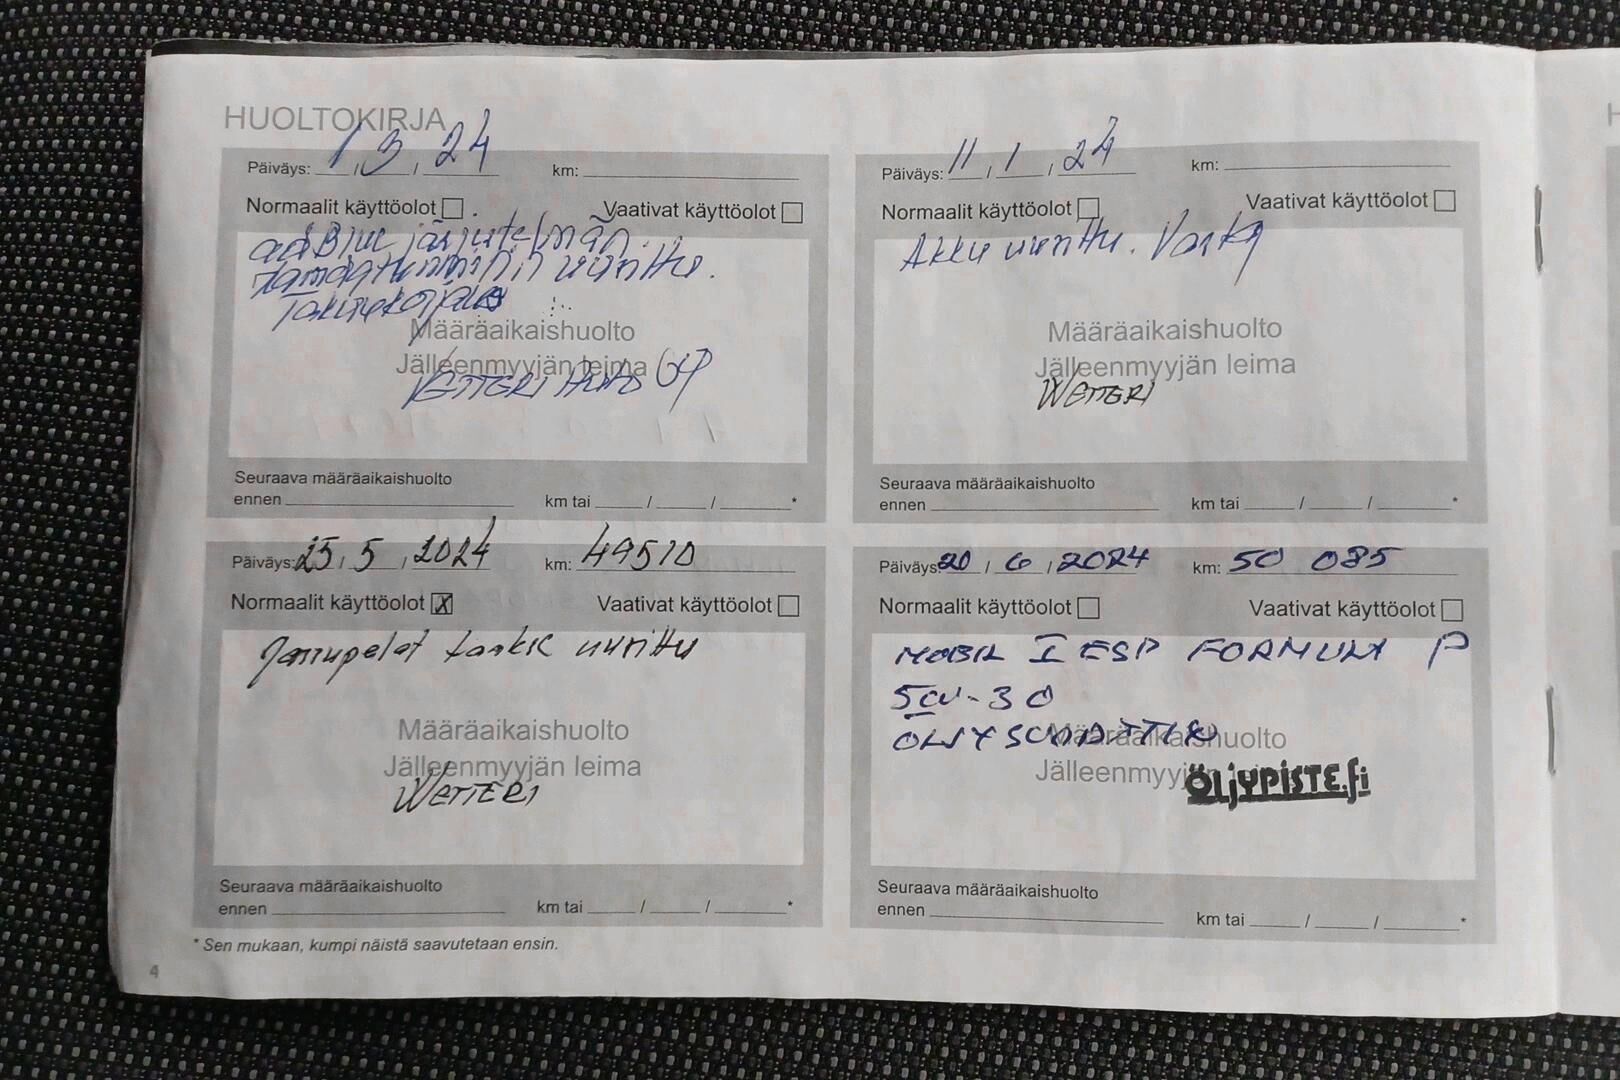 HUOLTOKIRJA
Päiväys: 1 / 3 / 24 km:
Normaalit käyttöolot Vaativat käyttöolot
adBlue järjestelmän
uusittu.
Takuukorjaus
Määräaikaishuolto
Jälleenmyyjän leima
WETTERI AUTO OY
Seuraava määräaikaishuolto
ennen km tai / / *
Päiväys: 11 / 1 / 24 km:
Normaalit käyttöolot Vaativat käyttöolot
Akku uusittu. Varta
Määräaikaishuolto
Jälleenmyyjän leima
WETTERI
Seuraava määräaikaishuolto
ennen km tai / / *
Päiväys: 25 / 5 / 2024 km: 49510
Normaalit käyttöolot X Vaativat käyttöolot
Jarrupalat taakse uusittu
Määräaikaishuolto
Jälleenmyyjän leima
WETTERI
Seuraava määräaikaishuolto
ennen km tai / / *
Päiväys: 20 / 6 / 2024 km: 50 085
Normaalit käyttöolot Vaativat käyttöolot
MOBIL 1 ESP FORMULA P
5W-30
ÖLJYSUODATTIN
Määräaikaishuolto
Jälleenmyyjän
ÖLJYPISTE.fi
Seuraava määräaikaishuolto
ennen km tai / / *
* Sen mukaan, kumpi näistä saavutetaan ensin.
4